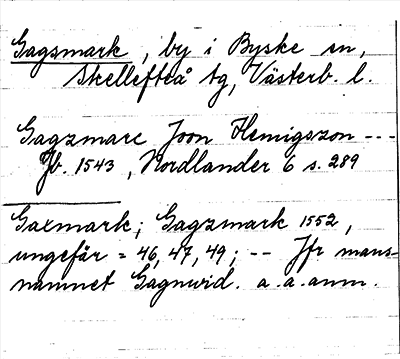 Gagsmark, by i Byske sn,
Skellefteå tg, Västerb. l.
Gagzmarc Joon Hemigszon ---
Jb. 1543, Nordlander 6 s. 289
Gaxmark; Gagzmark 1552,
ungefär = 46, 47, 49; -- Jfr mans-
namnet Gagnvid. a.a. anm.